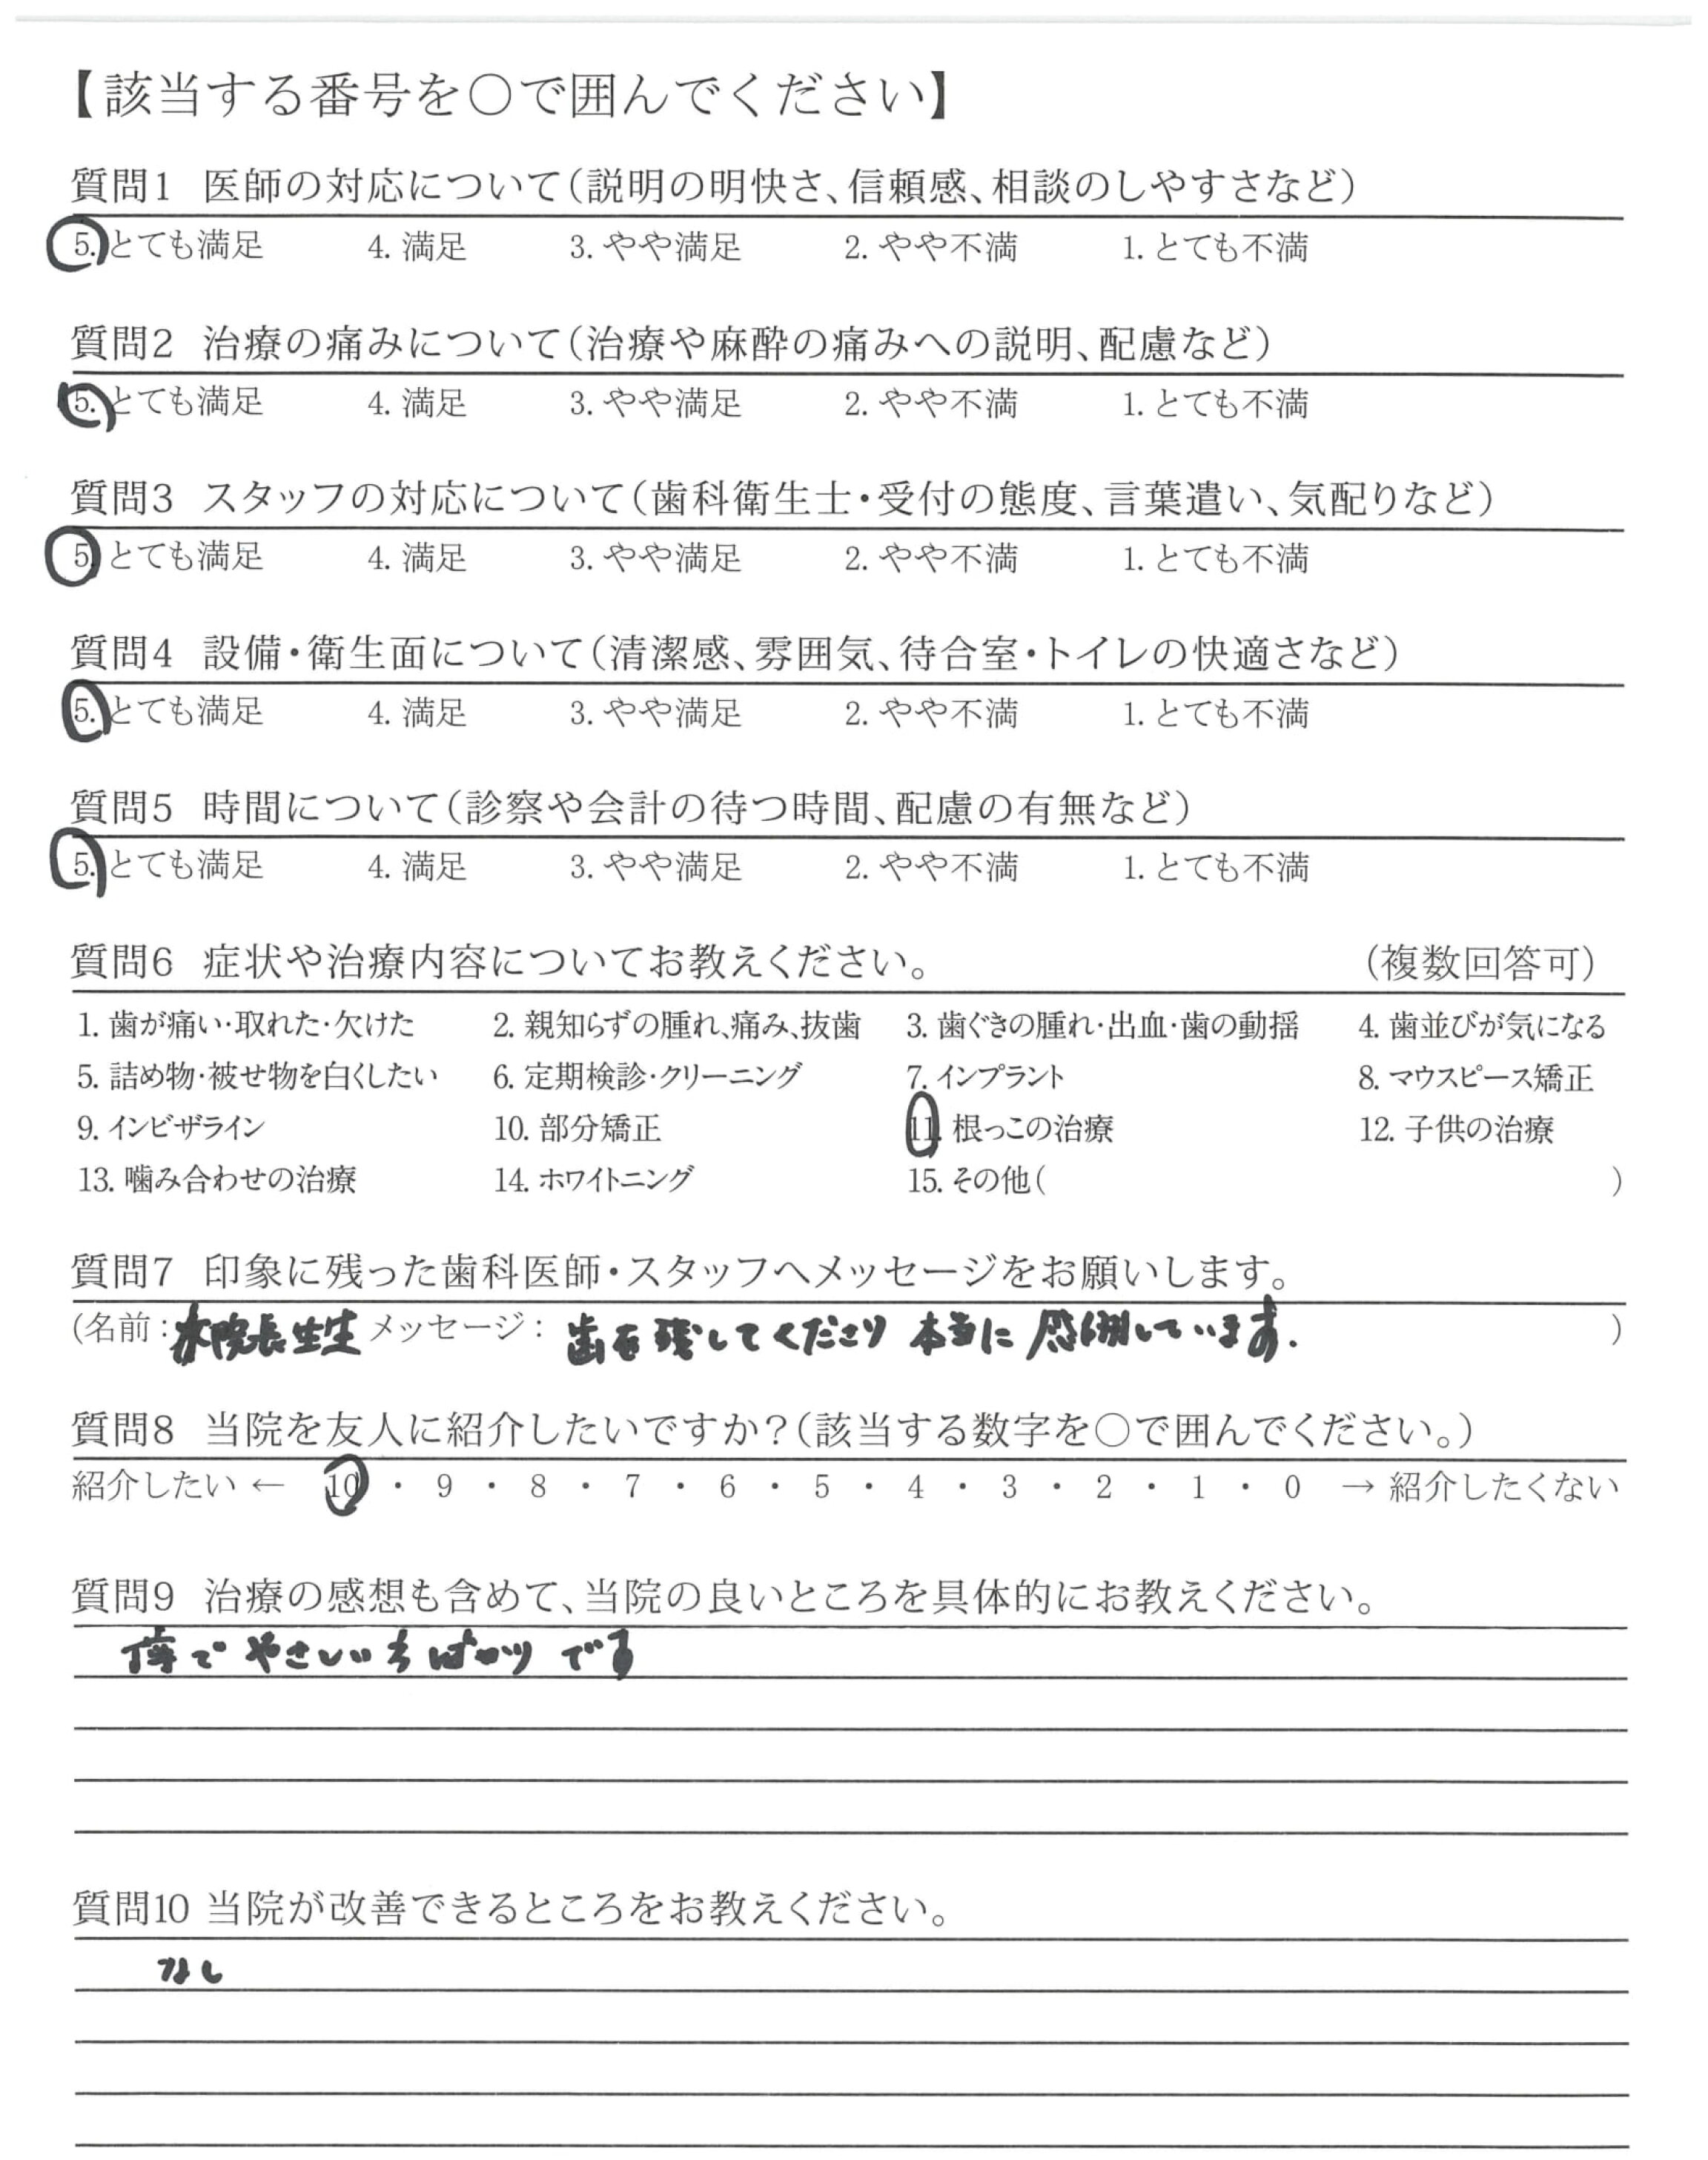 【該当する番号を○で囲んでください】
質問1 医師の対応について(説明の明快さ、信頼感、相談のしやすさなど)
5. とても満足 4. 満足 3. やや満足 2. やや不満 1. とても不満
質問2 治療の痛みについて(治療や麻酔の痛みへの説明、配慮など)
5. とても満足 4. 満足 3. やや満足 2. やや不満 1. とても不満
質問3 スタッフの対応について(歯科衛生士・受付の態度、言葉遣い、気配りなど)
5. とても満足 4. 満足 3. やや満足 2. やや不満 1. とても不満
質問4 設備・衛生面について(清潔感、雰囲気、待合室・トイレの快適さなど)
5. とても満足 4. 満足 3. やや満足 2. やや不満 1. とても不満
質問5 時間について(診察や会計の待つ時間、配慮の有無など)
5. とても満足 4. 満足 3. やや満足 2. やや不満 1. とても不満
質問6 症状や治療内容についてお教えください。 (複数回答可)
1. 歯が痛い・取れた・欠けた 2. 親知らずの腫れ、痛み、抜歯 3. 歯ぐきの腫れ・出血・歯の動揺 4. 歯並びが気になる
5. 詰め物・被せ物を白くしたい 6. 定期検診・クリーニング 7. インプラント 8. マウスピース矯正
9. インビザライン 10. 部分矯正 11. 根っこの治療 12. 子供の治療
13. 噛み合わせの治療 14. ホワイトニング 15. その他( )
質問7 印象に残った歯科医師・スタッフへメッセージをお願いします。
(名前: 院長 メッセージ: 歯を残してくださり 本当に 感謝しています. )
質問8 当院を友人に紹介したいですか?(該当する数字を○で囲んでください。)
紹介したい ← 10 ・ 9 ・ 8 ・ 7 ・ 6 ・ 5 ・ 4 ・ 3 ・ 2 ・ 1 ・ 0 → 紹介したくない
質問9 治療の感想も含めて、当院の良いところを具体的にお教えください。
やさしい ばかり です
質問10 当院が改善できるところをお教えください。
なし